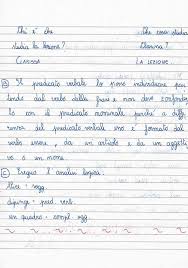 Chi è che
studia la lezione? Che cosa studia
Clarissa?
Clarissa La lezione.
B Il predicato verbale lo posso individuare par
tendo dal verbo della frase e non devo confonder
lo con il predicato nominale perché a diffe
renza del predicato verbale esso è formato dal
verbo essere, da un articolo e da un aggetti
vo o un nome.
C Eseguo l'analisi logica.
Alice = sogg.
dipinge = pred. verb.
un quadro = compl. ogg.